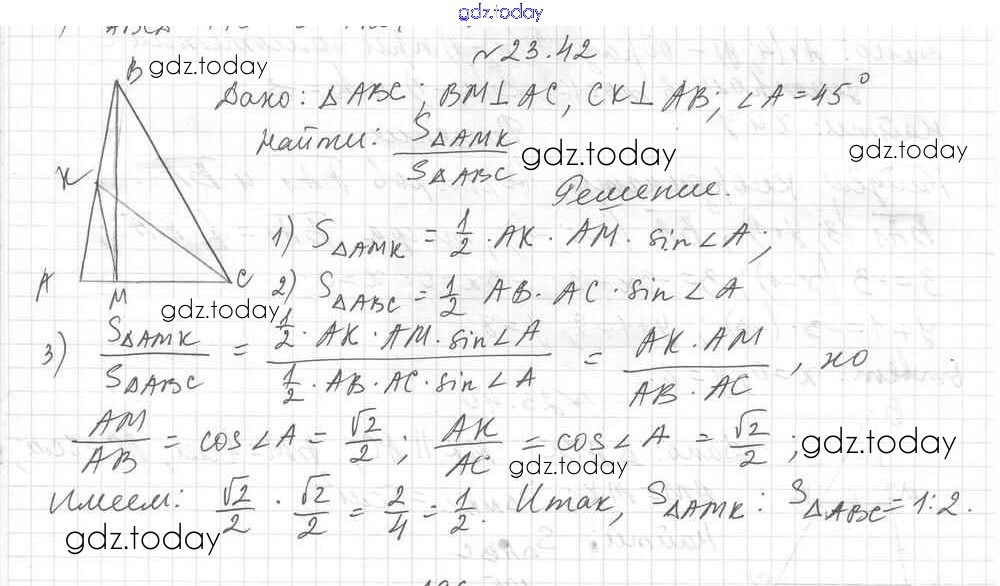 gdz.today
№23.42
B gdz.today
Дано: ΔABC; BM⊥AC, CK⊥AB; ∠A = 45°
Найти: S_ΔAMK / S_ΔABC
gdz.today gdz.today
K
Решение.
1) S_ΔAMK = 1/2 · AK · AM · sin∠A;
A M C
2) S_ΔABC = 1/2 AB · AC · sin∠A
gdz.today
3) S_ΔAMK / S_ΔABC = (1/2 · AK · AM · sin∠A) / (1/2 · AB · AC · sin∠A) = (AK · AM) / (AB · AC), но
AM/AB = cos∠A = √2/2; AK/AC = cos∠A = √2/2; gdz.today
gdz.today
Имеем: √2/2 · √2/2 = 2/4 = 1/2. Итак, S_ΔAMK : S_ΔABC = 1:2.
gdz.today